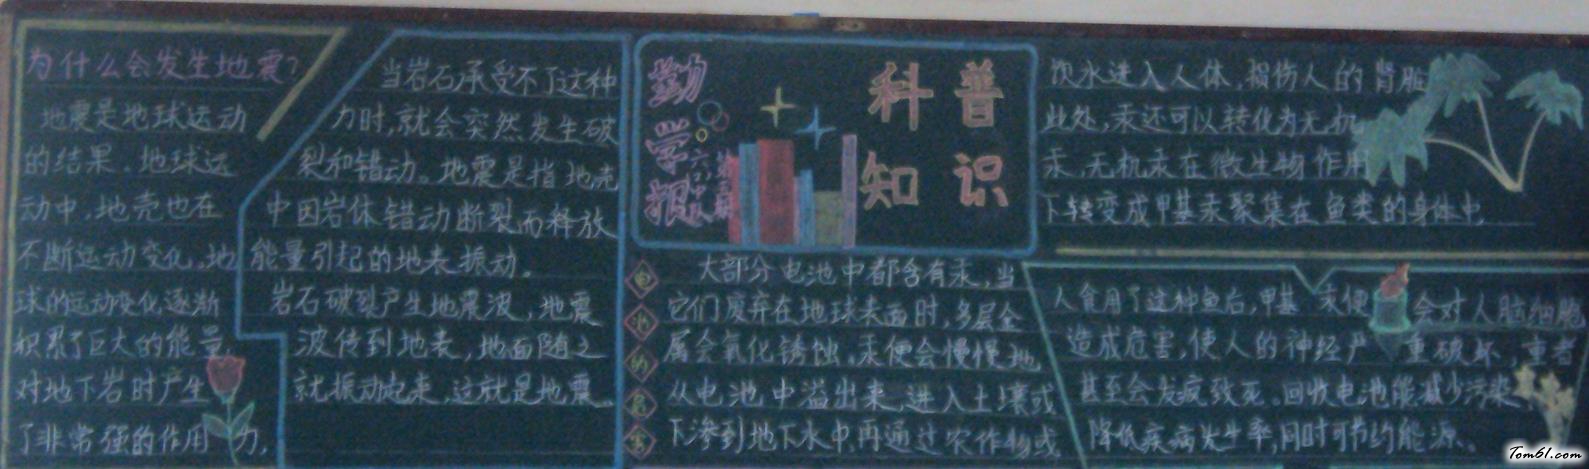 为什么会发生地震?
地震是地球运动
的结果。地球运
动中,地壳也在
不断运动变化,地
球的运动变化逐渐
积累了巨大的能量,
对地下岩时产生
了非常强的作用力,
当岩石承受不了这种
力时,就会突然发生破
裂和错动。地震是指地壳
中因岩体错动断裂而释放
能量引起的地表振动。
岩石破裂产生地震波,地震
波传到地表,地面随之
就振动起来,这就是地震。
勤学报
科普
知识
电池的危害
大部分电池中都含有汞,当
它们废弃在地球表面时,多层金
属会氧化锈蚀,汞便会慢慢地
从电池中溢出来,进入土壤或
下渗到地下水中,再通过农作物或
饮水进入人体,损伤人的肾脏
此处,汞还可以转化为无机
汞,无机汞在微生物作用
下转变成甲基汞聚集在鱼类的身体中,
人食用了这种鱼后,甲基汞便会对人脑细胞
造成危害,使人的神经严重破坏,重者
甚至会发疯致死。回收电池能减少污染,
降低疾病发生率,同时可节约能源。
Tom61.com